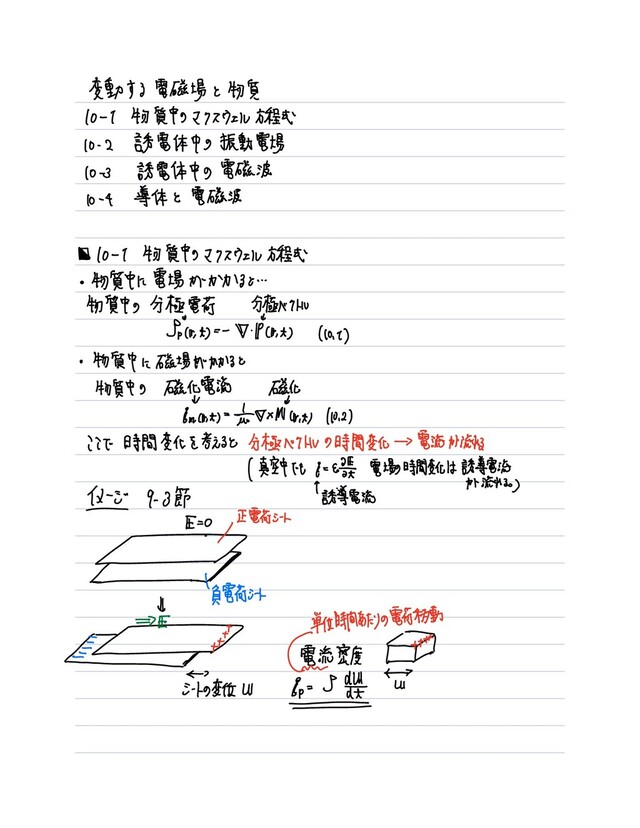 変動する電磁場と物質
10-1 物質中のマクスウェル方程式
10-2 誘電体中の振動電場
10-3 誘電体中の電磁波
10-4 導体と電磁波
10-1 物質中のマクスウェル方程式
・物質中に電場がかかると…
物質中の 分極電荷 分極ベクトル
ρp(r,t)=-∇·P(r,t) (10,1)
・物質中に磁場がかかると
物質中の 磁化電流 磁化
im(r,t)=1/μ₀ ∇×M(r,t) (10,2)
ここで時間変化を考えると 分極ベクトルの時間変化→電流が流れる
(真空中でも i=ε∂E/∂t 電場の時間変化は誘導電流
が流れる。)
誘導電流
イメージ 9-3節
E=0
正電荷シート
負電荷シート
⇓
⇒E
単位時間あたりの電荷移動
電流密度
シートの変位 u
u
ip=ρ du/dt